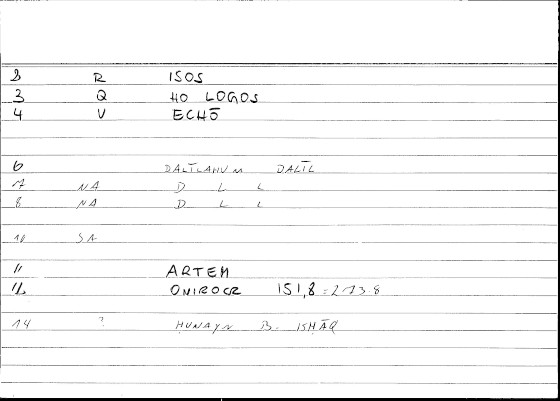 2 R ISOS
3 Q HO LOGOS
4 V ECHŌ
6 DALĪLAHUM DALĪL
7 NA D L L
8 NA D L L
10 SA
11 ARTEM
12 ONIROCR 151,8 = 273.8
14 ? HUNAYN B. ISHĀQ